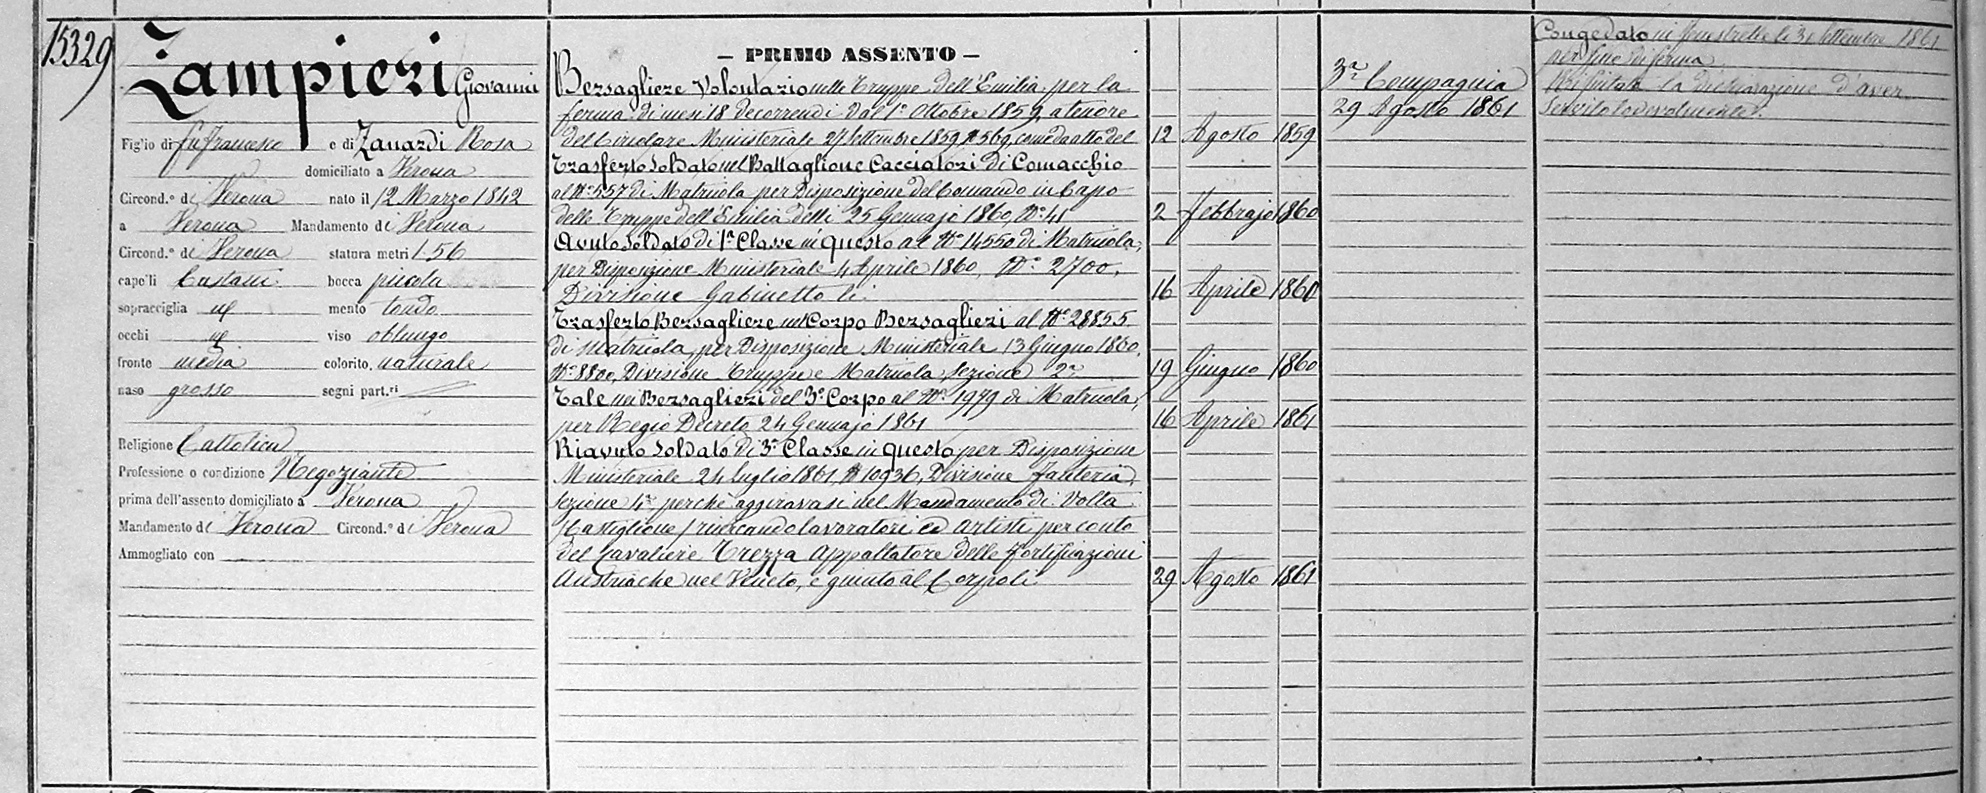 15329
Zampieri Giovanni
Figlio di fu Francesco e di Zanardi Rosa
domiciliato a Verona
Circond.º di Verona nato il 12 Marzo 1842
a Verona Mandamento di Verona
Circond.º di Verona statura metri 1.56
capelli Castani bocca piccola
sopracciglia mento tondo
occhi viso oblungo
fronte media colorito naturale
naso grosso segni part.ri
Religione Cattolica
Professione o condizione Negoziante
prima dell'assento domiciliato a Verona
Mandamento di Verona Circond.º di Verona
Ammogliato con
— PRIMO ASSENTO —
Bersagliere Volontario nelle Truppe dell'Emilia per la
ferma di mesi 18 decorrendi dal 1º Ottobre 1859, a tenore
del Circolare Ministeriale 27 Settembre 1859 Nº 569, come da atto del 12 Agosto 1859
Trasferto Soldato nel Battaglione Cacciatori di Comacchio
al Nº 557 di Matricola per Disposizione del Comando in Capo
delle Truppe dell'Emilia detti 25 Gennajo 1860, Nº 41 2 Febbrajo 1860
Avuto Soldato di 1ª Classe in questo al Nº 14550 di Matricola,
per Disposizione Ministeriale 4 Aprile 1860, Nº 2700,
Divisione Gabinetto li 16 Aprile 1860
Trasferto Bersagliere nel Corpo Bersaglieri al Nº 28855
di Matricola, per Disposizione Ministeriale 13 Giugno 1860,
Nº 8800, Divisione Truppe e Matricola, Sezione 2ª 19 Giugno 1860
Tale nei Bersaglieri del 3º Corpo al Nº 1949 di Matricola,
per Regio Decreto 24 Gennajo 1861 16 Aprile 1861
Riavuto Soldato di 3ª Classe in questo per Disposizione
Ministeriale 24 Luglio 1861, Nº 10936, Divisione Fanteria,
Sezione 4ª perchè aggiravasi nel Mandamento di Volta
Castiglione lavoratori ed artisti per conto
del Cavaliere Trezza Appaltatore delle Fortificazioni
Austriache nel Veneto, e giunto al Corpo li 29 Agosto 1861
3ª Compagnia
29 Agosto 1861
Congedato in Fenestrelle li 31 Settembre 1861
per fine di ferma
la dichiarazione d'aver
servito lodevolmente.